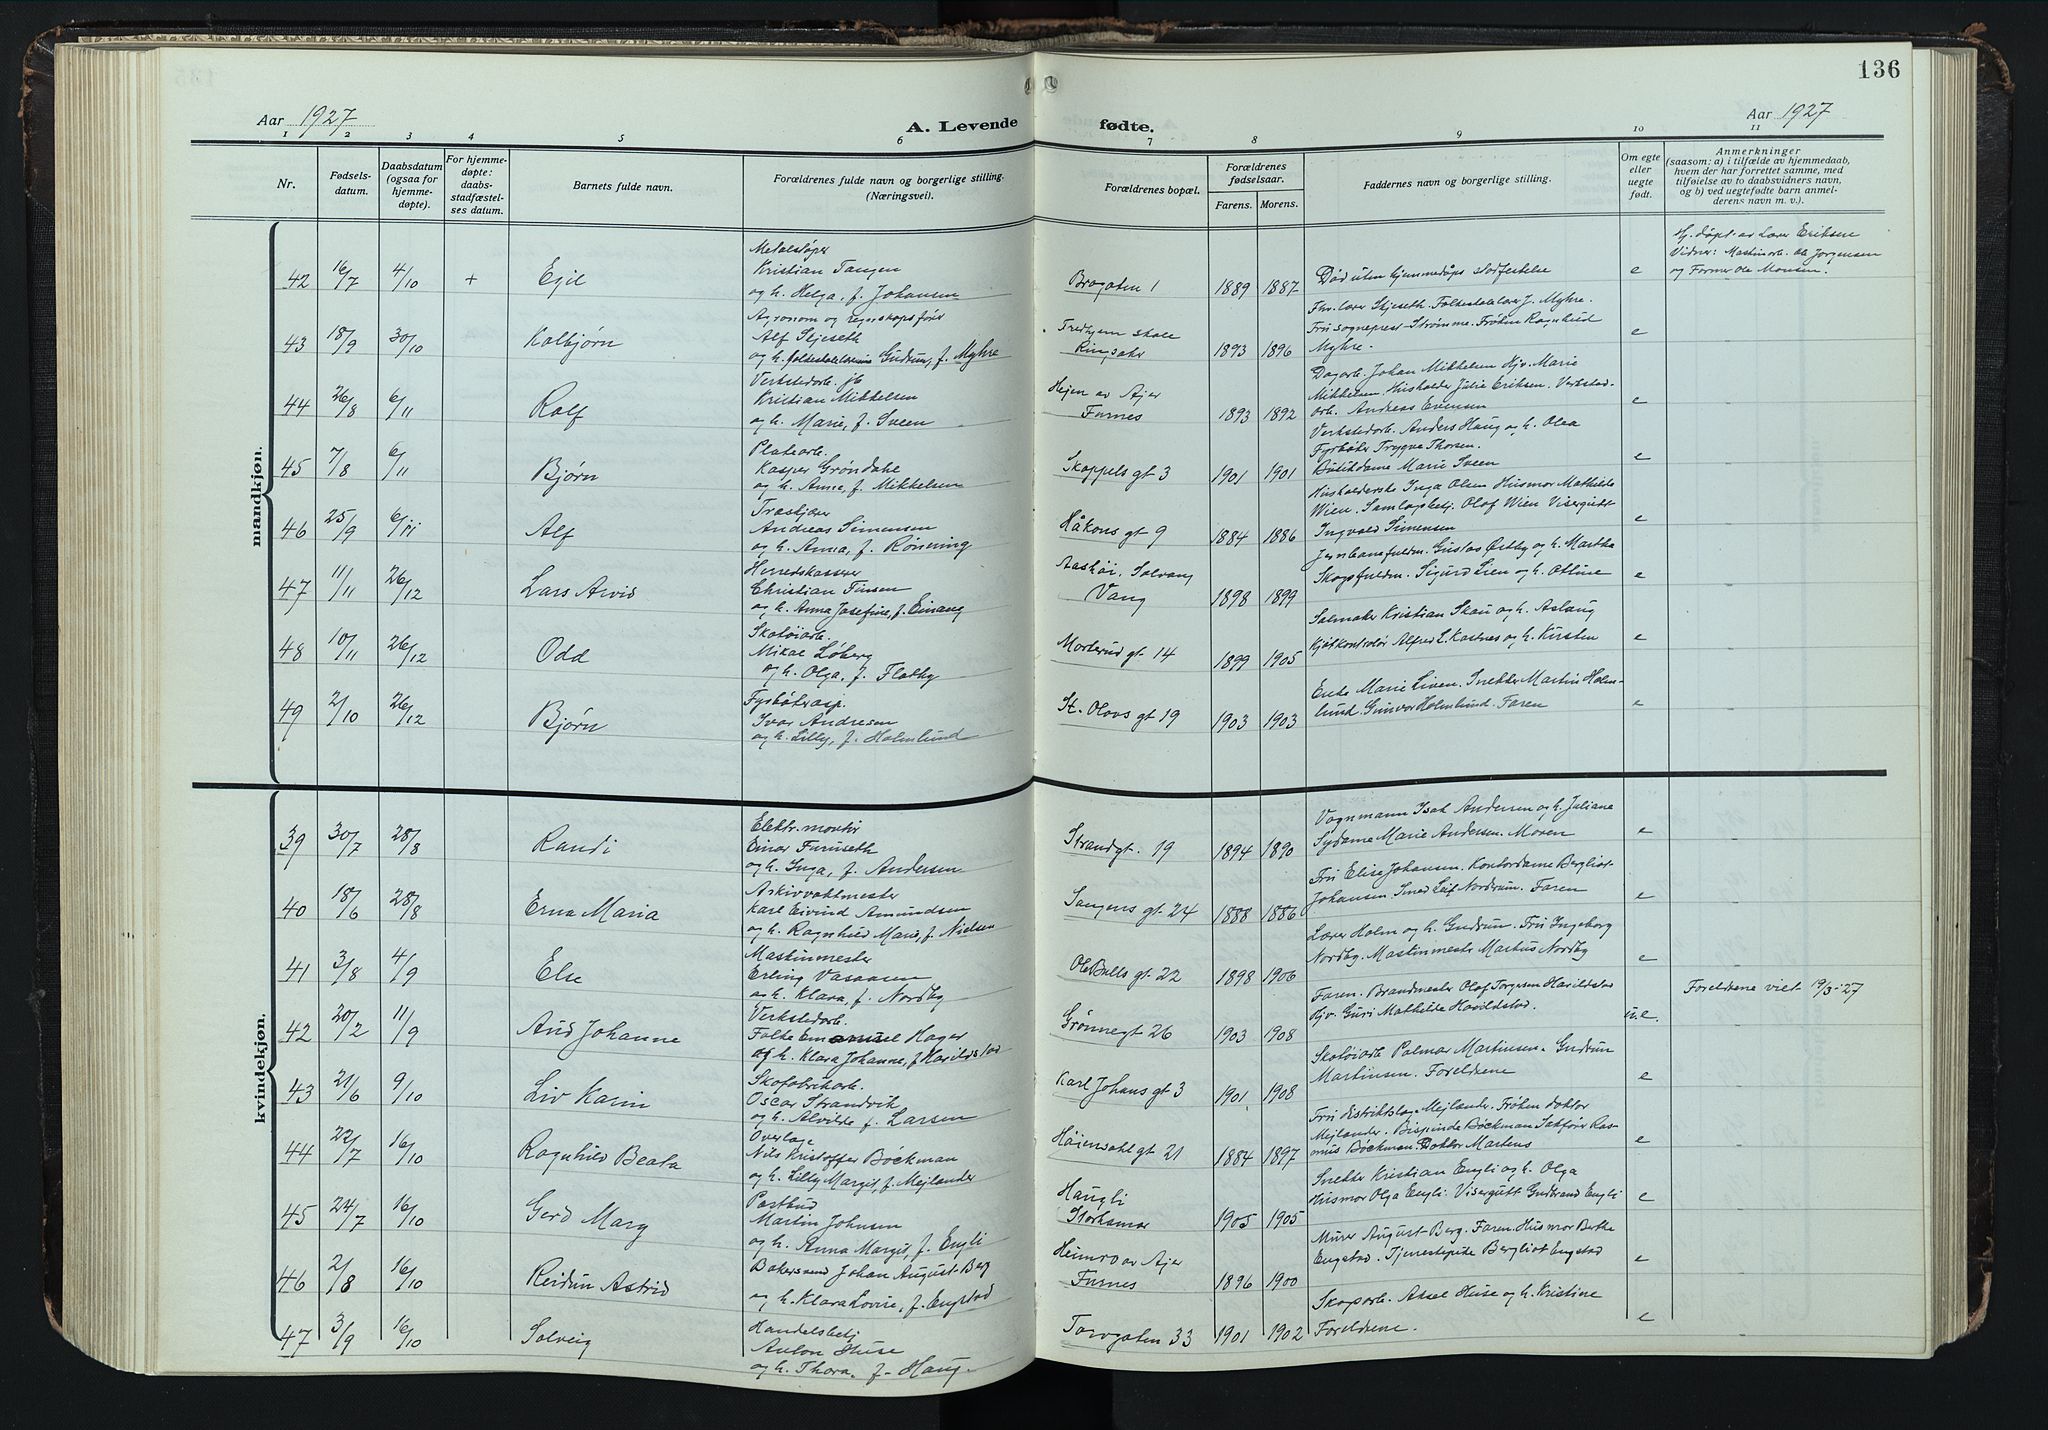 136
Aar 1927
A. Levende fødte.
Aar 1927
1 2 3 4 5 6 7 8 9 10 11
Nr.
Fødsels-
datum.
Daabsdatum
(ogsaa for
hjemme-
døpte).
For hjemme-
døpte:
daabs-
stadfæstel-
ses datum.
Barnets fulde navn.
Forældrenes fulde navn og borgerlige stilling.
(Næringsvei).
Forældrenes bopæl.
Forældrenes
fødselsaar.
Farens. Morens.
Faddernes navn og borgerlige stilling.
Om egte
eller
uegte
født.
Anmerkninger
(saasom: a) i tilfælde av hjemmedaab,
hvem der har forrettet samme, med
tilføielse av to daabsvidners navn,
og b) ved uegtefødte barn anmel-
derens navn m. v.).
mandkjøn.
42 16/7 4/10 + Egil
Metalstøper
Kristian Tangen
og h. Helga, f. Johansen
Brogaten 1 1889 1887
Død uten hjemmedåps stadfestelse
e
Hj. døpt av Lærer Eriksen
Vidner: Maskinarb. Ole Jørgensen
og Former Ole Monsen.
43 18/9 30/10 Kolbjørn
Agronom og regnskapsfører
Alf Skjeseth
og h. folkeskolelærerinne Gudrun, f. Myhre
Tredhjem skole
Ringsaker 1893 1896
Fhv. lærer Skjeseth. Folkeskolelærer J. Myhre.
Fru sogneprest Strømme. Frøken Ragnhild
Myhre.
e
44 26/8 6/11 Rolf
Verkstedarb.
Kristian Mikkelsen
og h. Marie, f. Sveen
Hejen av Ajer
Furnes 1893 1892
Dagarb. Johan Mikkelsen Hjv. Marie
Mikkelsen. Husholder Julie Eriksen. Verksted-
arb. Andreas Evensen
e
45 7/8 6/11 Bjørn
Platearb.
Kasper Grøndahl
og h. Anna, f. Mikkelsen
Skappels gt 3 1901 1901
Verkstedarb. Anders Haug og h. Olea
Fyrbøter Trygve Thorsen.
Butikdame Marie Sveen
e
46 25/9 6/11 Alf
Træskjærer
Andreas Simensen
og h. Anna, f. Rønning
Håkons gt 9 1884 1886
Husholderske Inga Olsen Husmor Mathilde
Wien. Samlagsbetj. Olaf Wien Visergutt
Ingvald Simensen
e
47 11/11 26/12 Lars Arvid
Herredskasserer
Christian Finsen
og h. Anna Josefine, f. Einang
Aashøi, Solvang
Vang 1898 1899
Jernbanefuldm. Gustav Østby og h. Martha
Skogsfuldm. Sigurd Lien og h. Otline
e
48 10/11 26/12 Odd
Skotøiarb.
Mikal Løberg
og h. Olga, f. Flatby
Morterud gt 14 1899 1905
Salmaker Kristian Skau og h. Aslaug
Kjøtkontrolør Alfred L. Kastnes og h. Kirsten
e
49 2/10 26/12 Bjørn
Fyrbøterasp.
Ivar Andresen
og h. Lilly, f. Holmlund
St. Olavs gt 19 1903 1903
Enke Marie Liven. Snekker Martin Holm-
lund. Gunvor Holmlund. Faren
e
kvindekjøn.
39 30/7 28/8 Randi
Elektr. montør
Einar Furuseth
og h. Inga, f. Andersen
Strandgt. 19 1894 1890
Vognmann Isak Andersen og h. Juliane
Sydame Marie Andersen. Moren
e
40 18/6 28/8 Erna Maria
Arkivvaktmester
Karl Eivind Amundsen
og h. Ragnhild Marie, f. Nielsen
Tangens gt 24 1888 1886
Fru Elise Johansen. Kontordame Bergliot
Johansen. Smed Leif Nordrum. Faren
e
41 3/8 4/9 Else
Maskinmester
Erling Vasaasen
og h. Klara, f. Nordby
Ole Bulls gt 22 1898 1906
Lærer Holm og h. Gudrun. Fru Ingeborg
Nordby. Maskinmester Markus Nordby
e
42 20/2 11/9 Aud Johanne
Verkstedarb.
Folke Emanuel Hager
og h. Klara Johanne, f. Harildstad
Grønnegt 26 1903 1908
Faren. Brandmester Olaf Torgersen Harildstad
Hjv. Guri Mathilde Harildstad.
u.e.
Foreldrene viet 19/3-27
43 21/6 9/10 Liv Karin
Skofabrikarb.
Oscar Strandvik
og h. Alvilde f. Larsen
Karl Johans gt 3 1901 1908
Skotøiarb Palmar Martinsen. Gudrun
Martinsen. Foreldrene
e
44 22/7 16/10 Ragnhild Beata
Overlæge
Nils Kristoffer Bøckman
og h. Lilly Margit, f. Mejlænder
Høiensahl gt 21 1884 1897
Fru distriktslæge Mejlænder. Frøken doktor
Mejlænder. Bispinde Bøckman Sakfører Ras-
mus Bøckman. Doktor Martens
e
45 24/7 16/10 Gerd Mary
Postbud
Martin Johnsen
og h. Anna Margit, f. Engli
Haugli
Storhamar 1905 1905
Snekker Kristian Engli og h. Olga
Husmor Olga Engli. Visergutt Gudbrand Engli
e
46 2/8 16/10 Reidun Astrid
Bakersvend Johan August Berg
og h. Klara Lovise, f. Engstad
Heimro av Ajer
Furnes 1896 1900
Murer August Berg. Faren. Husmor Berthe
Engstad. Tjenestepike Bergliot Engstad
e
47 3/9 16/10 Solveig
Handelsbetj
Anton Huse
og h. Thora, f. Haug.
Torvgaten 33 1901 1902
Skoparb. Aksel Huse og h. Kristine
Foreldrene.
e